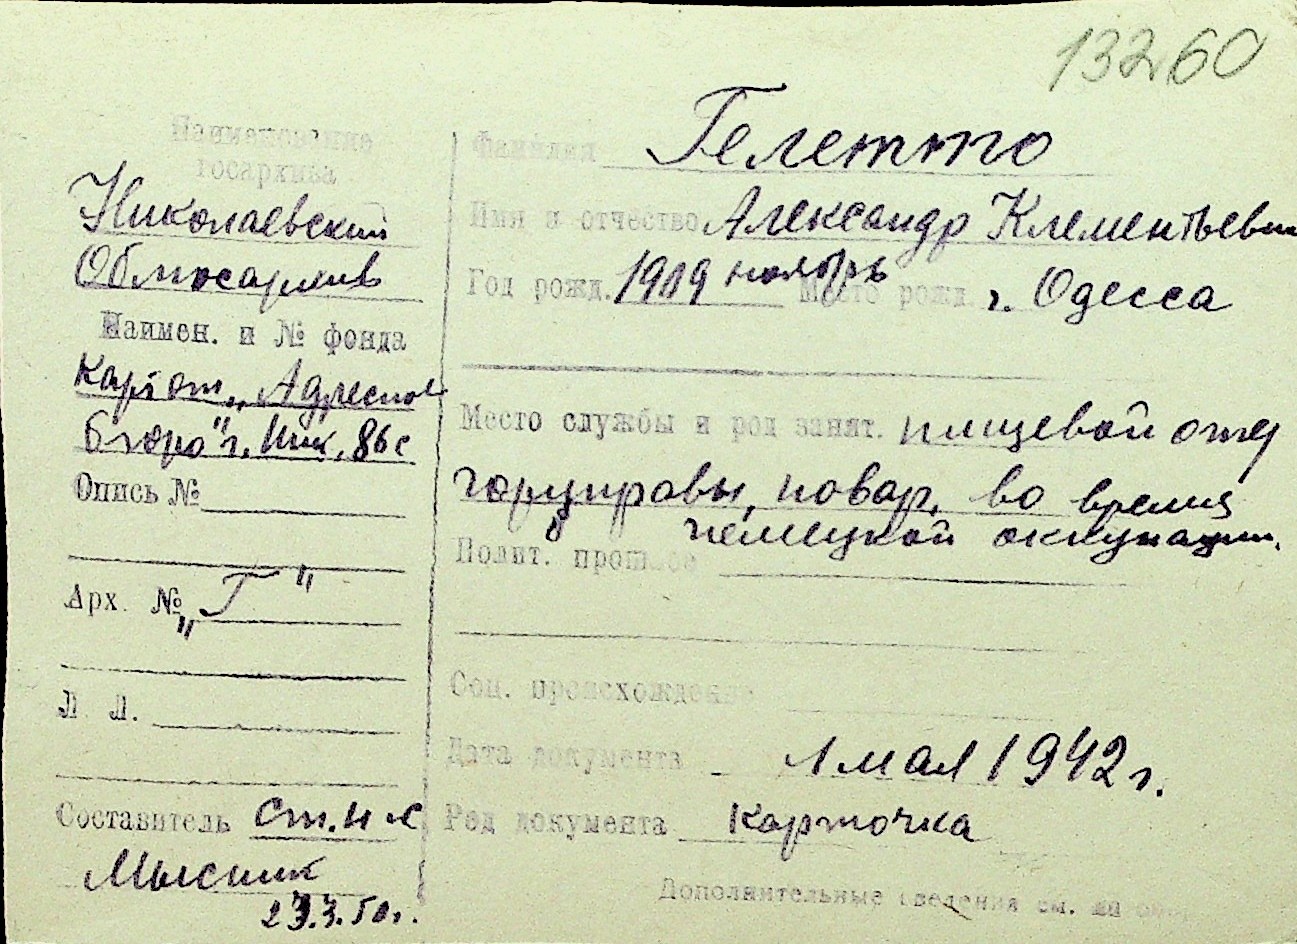 13260
Наименование
госархива
Николаевский
Облгосархив
Наимен. и № фонда
Картот. „Адресное
бюро" г. Ник. 86 с
Опись №
Арх. № „Г"
Л. Л.
Составитель ст. н. с.
Мысник
23.3.50 г.
Фамилия Гелетто
Имя и отчество Александр Клементьевич
Год рожд. 1909 ноябрь Место рожд. г. Одесса
Место службы и род занят. пищевой отд
горуправы, повар, во время
немецкой оккупации.
Полит. прошлое
Соц. происхождение
Дата документа 1 мая 1942 г.
Род документа Карточка
Дополнительные сведения см. на обор.